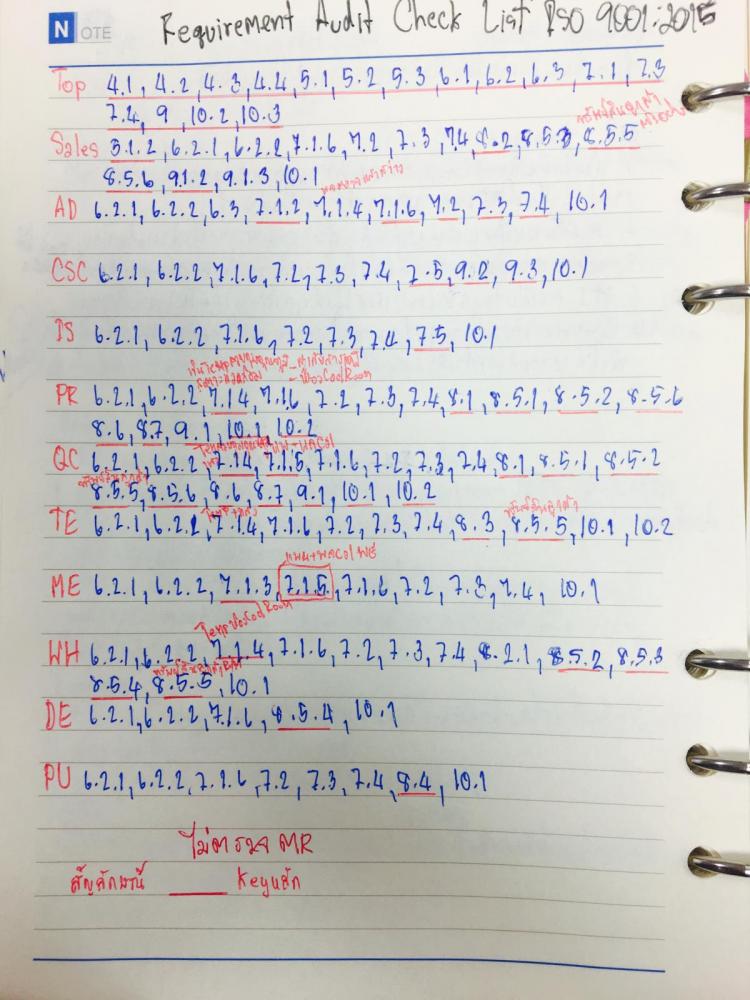 N NOTE
Requirement Audit Check List ISO 9001:2015
Top 4.1, 4.2, 4.3, 4.4, 5.1, 5.2, 5.3, 6.1, 6.2, 6.3, 7.1, 7.3
7.4, 9, 10.2, 10.3
ทรัพย์สินลูกค้า
Sales 5.1.2, 6.2.1, 6.2.2, 7.1.6, 7.2, 7.3, 7.4, 8.2, 8.5.3, 8.5.5
8.5.6, 9.1.2, 9.1.3, 10.1
AD 6.2.1, 6.2.2, 6.3, 7.1.2, 7.1.4, 7.1.6, 7.2, 7.3, 7.4, 10.1
CSC 6.2.1, 6.2.2, 7.1.6, 7.2, 7.3, 7.4, 7.5, 9.2, 9.3, 10.1
IS 6.2.1, 6.2.2, 7.1.6, 7.2, 7.3, 7.4, 7.5, 10.1
- ห้อง Cool Room
PR 6.2.1, 6.2.2, 7.1.4, 7.1.6, 7.2, 7.3, 7.4, 8.1, 8.5.1, 8.5.2, 8.5.6
8.6, 8.7, 9.1, 10.1, 10.2
QC 6.2.1, 6.2.2, 7.1.4, 7.1.5, 7.1.6, 7.2, 7.3, 7.4, 8.1, 8.5.1, 8.5.2
ทรัพย์สินลูกค้า
8.5.5, 8.5.6, 8.6, 8.7, 9.1, 10.1, 10.2
ทรัพย์สินลูกค้า
TE 6.2.1, 6.2.2, 7.1.4, 7.1.6, 7.2, 7.3, 7.4, 8.3, 8.5.5, 10.1, 10.2
แผน+ผลCal
ME 6.2.1, 6.2.2, 7.1.3, 7.1.5, 7.1.6, 7.2, 7.3, 7.4, 10.1
Temp ห้อง Cool Room
WH 6.2.1, 6.2.2, 7.1.4, 7.1.6, 7.2, 7.3, 7.4, 8.2.1, 8.5.2, 8.5.3
ทรัพย์สินลูกค้า
8.5.4, 8.5.5, 10.1
DE 6.2.1, 6.2.2, 7.1.6, 8.5.4, 10.1
PU 6.2.1, 6.2.2, 7.1.6, 7.2, 7.3, 7.4, 8.4, 10.1
ไม่ตรวจ MR
สัญลักษณ์ ____ Keyหลัก